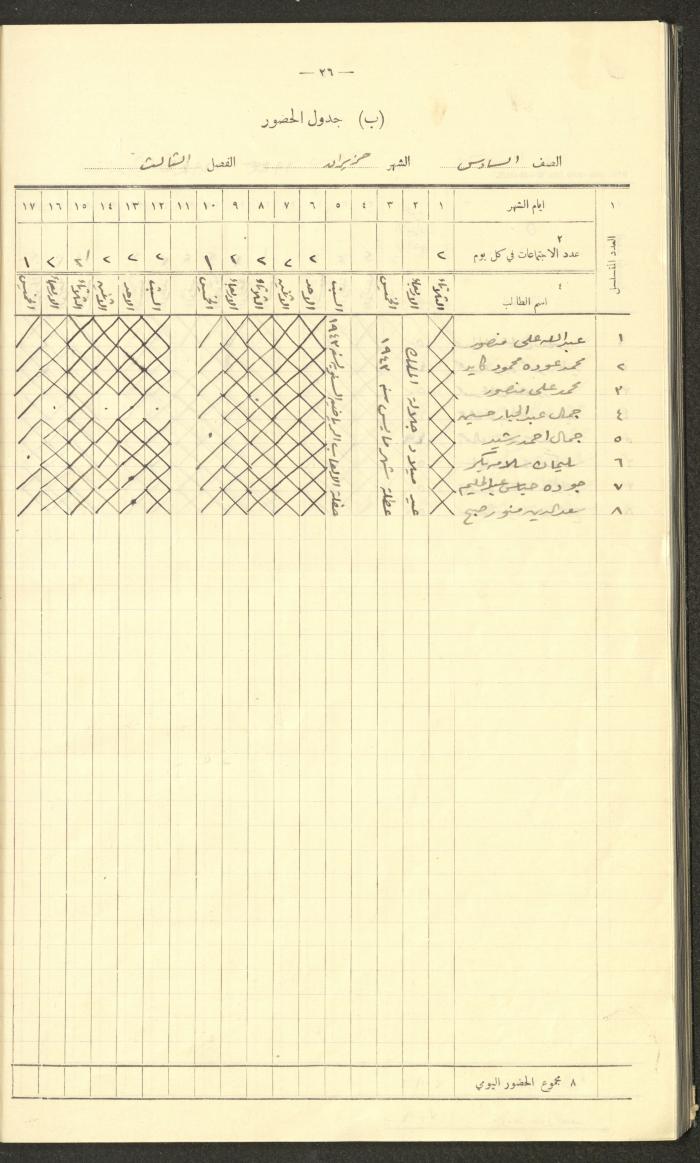 — ٢٦ —
(ب) جدول الحضور
الصف السادس الشهر حزيران الفصل الثالث
١ ايام الشهر ١ ٢ ٣ ٤ ٥ ٦ ٧ ٨ ٩ ١٠ ١١ ١٢ ١٣ ١٤ ١٥ ١٦ ١٧
العدد المتسلسل
٢
عدد الاجتماعات في كل يوم ٢ ٢ ٢ ٢ ٢ ١ ٢ ٢ ٢ ٢ ٢ ١
٤
اسم الطالب الثلاثاء الاربعاء الخميس السبت الاحد الاثنين الثلاثاء الاربعاء الخميس السبت الاحد الاثنين الثلاثاء الاربعاء الخميس
١ عبدالله علي منصور
٢ محمد عوده محمود كايد
٣ محمد علي منصور
٤ جمال عبد الجبار حسين
٥ جمال احمد رشيد
٦ سليمان سلامه بكر
٧ جوده عباس عبدالحليم
٨ سعد الدين منور صبح
عيد ميلاد جلالة الملك
عطلة شهر مايس سنة ١٩٤٣
حفلة الالعاب الرياضية السنوية سنة ١٩٤٣
٨ مجموع الحضور اليومي